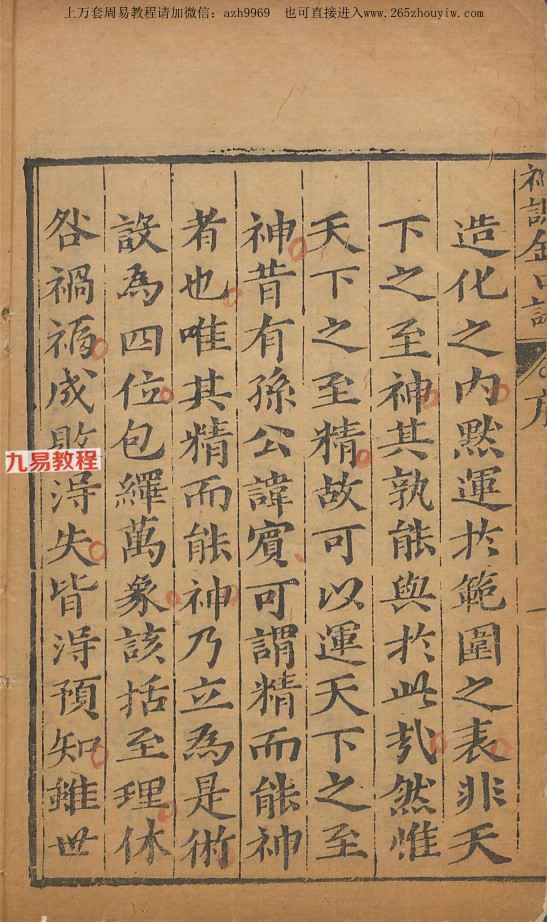 上万套周易教程请加微信：azh9969　也可直接进入www.265zhouyiw.com
神課金口訣
序
一
造化之內默運於範圍之表非天
下之至神其孰能與於此㢤然惟
天下之至精故可以運天下之至
神昔有孫公諱賓可謂精而能神
者也唯其精而能神乃立為是術
設為四位包繹萬象該括至理休
咎禍福成敗淂失皆淂預知雖世
九易教程